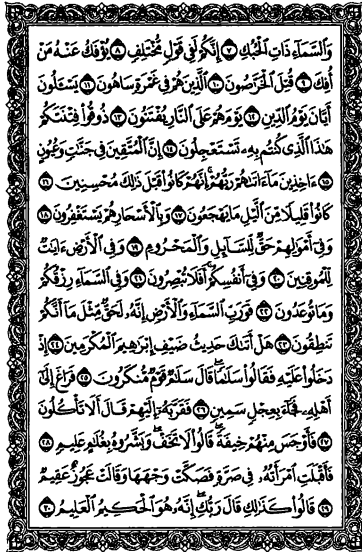 وَالسَّمَاءِ ذَاتِ الْحُبُكِ ٧ إِنَّكُمْ لَفِي قَوْلٍ مُخْتَلِفٍ ٨ يُؤْفَكُ عَنْهُ مَنْ
أُفِكَ ٩ قُتِلَ الْخَرَّاصُونَ ١٠ الَّذِينَ هُمْ فِي غَمْرَةٍ سَاهُونَ ١١ يَسْـَٔلُونَ
أَيَّانَ يَوْمُ الدِّينِ ١٢ يَوْمَ هُمْ عَلَى النَّارِ يُفْتَنُونَ ١٣ ذُوقُوا فِتْنَتَكُمْ
هَٰذَا الَّذِي كُنْتُمْ بِهِ تَسْتَعْجِلُونَ ١٤ إِنَّ الْمُتَّقِينَ فِي جَنَّٰتٍ وَعُيُونٍ
١٥ ءَاخِذِينَ مَا ءَاتَىٰهُمْ رَبُّهُمْ إِنَّهُمْ كَانُوا قَبْلَ ذَٰلِكَ مُحْسِنِينَ ١٦
كَانُوا قَلِيلًا مِنَ الَّيْلِ مَا يَهْجَعُونَ ١٧ وَبِالْأَسْحَارِ هُمْ يَسْتَغْفِرُونَ ١٨
وَفِي أَمْوَٰلِهِمْ حَقٌّ لِلسَّائِلِ وَالْمَحْرُومِ ١٩ وَفِي الْأَرْضِ ءَايَٰتٌ
لِلْمُوقِنِينَ ٢٠ وَفِي أَنْفُسِكُمْ أَفَلَا تُبْصِرُونَ ٢١ وَفِي السَّمَاءِ رِزْقُكُمْ
وَمَا تُوعَدُونَ ٢٢ فَوَرَبِّ السَّمَاءِ وَالْأَرْضِ إِنَّهُ لَحَقٌّ مِثْلَ مَا أَنَّكُمْ
تَنْطِقُونَ ٢٣ هَلْ أَتَىٰكَ حَدِيثُ ضَيْفِ إِبْرَٰهِيمَ الْمُكْرَمِينَ ٢٤ إِذْ
دَخَلُوا عَلَيْهِ فَقَالُوا سَلَٰمًا قَالَ سَلَٰمٌ قَوْمٌ مُنْكَرُونَ ٢٥ فَرَاغَ إِلَىٰ
أَهْلِهِ فَجَاءَ بِعِجْلٍ سَمِينٍ ٢٦ فَقَرَّبَهُ إِلَيْهِمْ قَالَ أَلَا تَأْكُلُونَ
٢٧ فَأَوْجَسَ مِنْهُمْ خِيفَةً قَالُوا لَا تَخَفْ وَبَشَّرُوهُ بِغُلَٰمٍ عَلِيمٍ ٢٨
فَأَقْبَلَتِ امْرَأَتُهُ فِي صَرَّةٍ فَصَكَّتْ وَجْهَهَا وَقَالَتْ عَجُوزٌ عَقِيمٌ
٢٩ قَالُوا كَذَٰلِكِ قَالَ رَبُّكِ إِنَّهُ هُوَ الْحَكِيمُ الْعَلِيمُ ٣٠